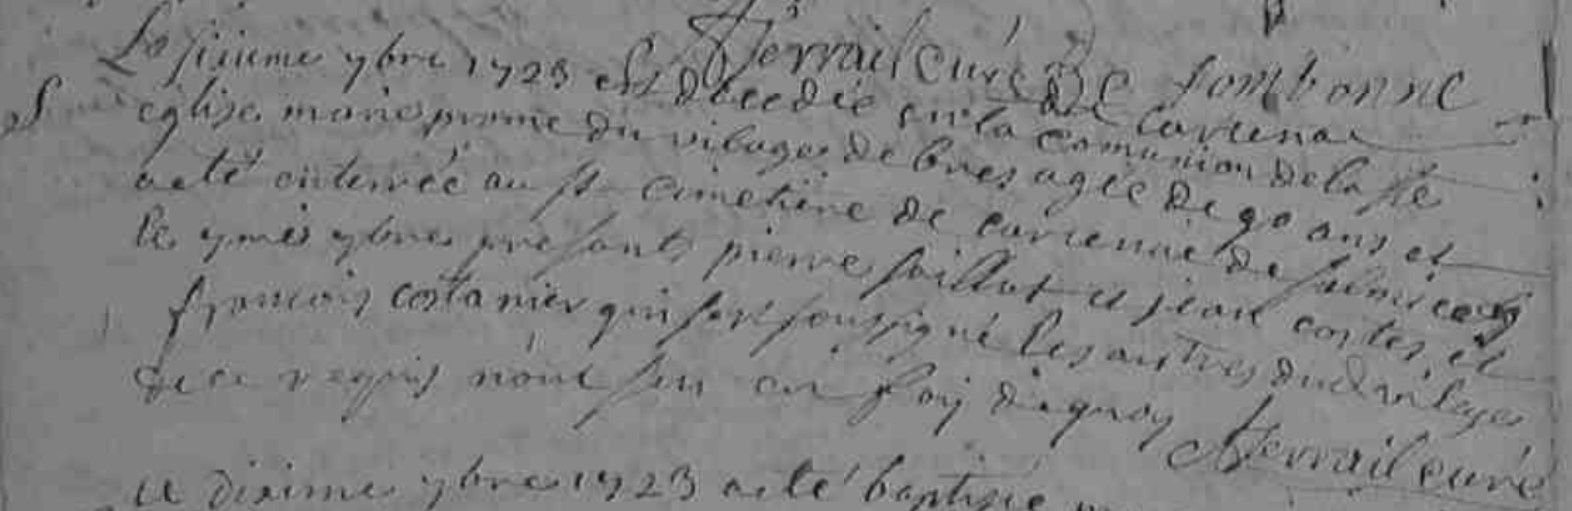 Verrail Curé De fombonne
Le sixieme 7bre 1723 est decedée en la Comunion de la Ste
église marie prome du vilage de bres agée de 90 ans et
a eté enterrée au st cimetiere de
le 7me 7bre presants pierre et jean costes, et
françois costanier qui sest soussigné les autres dud vilage
de ce requis n'ont sceu en foy de quoy
Verrail curé
Le dixime 7bre 1723 a eté baptisée